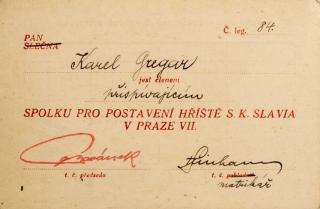 PAN
SLEČNA
Č. leg. 84.
Karel Gregar
jest členem
přispívajícím
SPOLKU PRO POSTAVENÍ HŘIŠTĚ S. K. SLAVIA
V PRAZE VII.
t. č. předseda
t. č. pokladník
matrikář